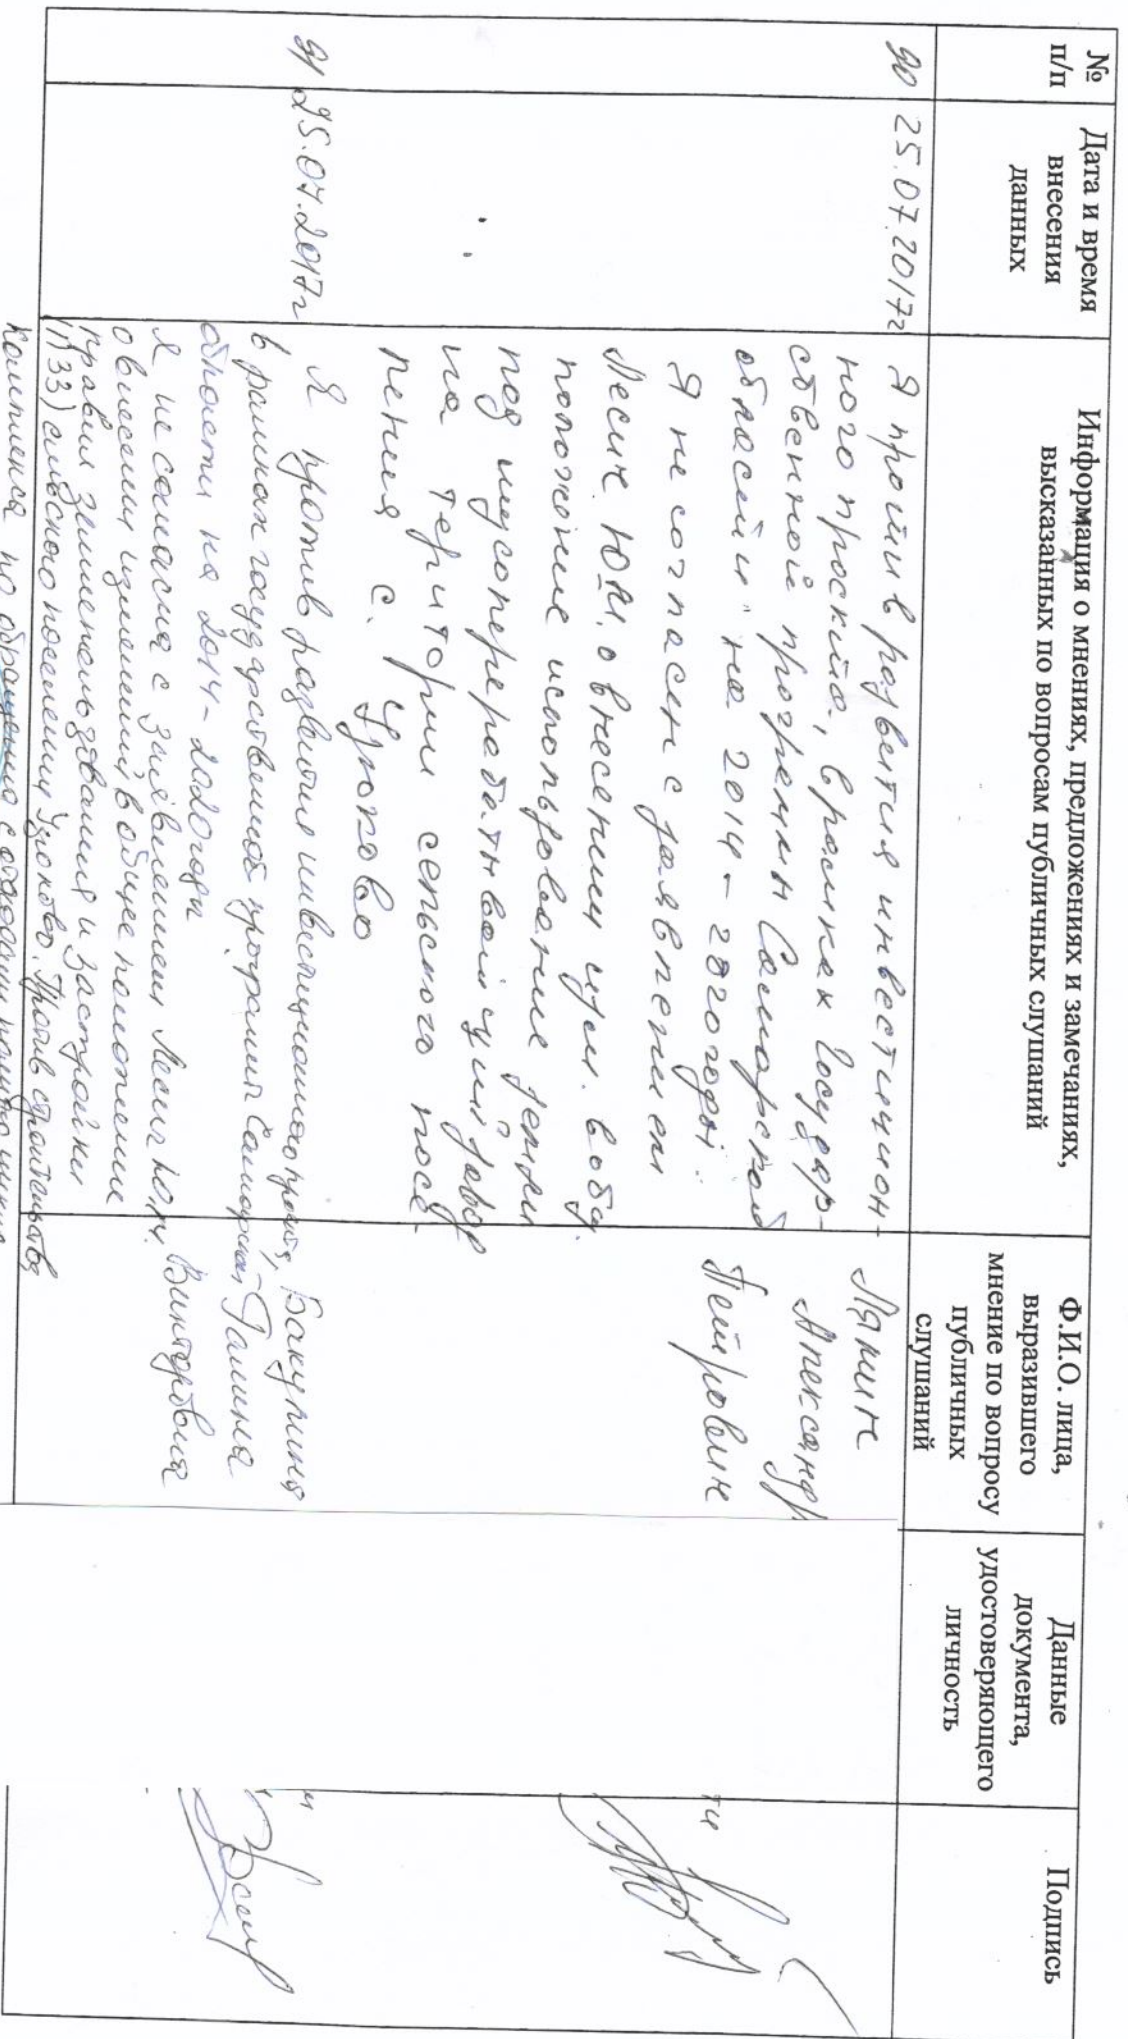 №
п/п
Дата и время
внесения
данных
Информация о мнениях, предложениях и замечаниях,
высказанных по вопросам публичных слушаний
Ф.И.О. лица,
выразившего
мнение по вопросу
публичных
слушаний
Данные
документа,
удостоверяющего
личность
Подпись
90
25.07.2017г
Я против развития инвестицион-
ного проекта, в рамках Государ-
ственной программы Самарской
области" на 2014 - 2020 годы.
Я не согласен с заявлением
Лесик Ю.М. о внесении изм. в общ.
положение использование земли
под мусороперерабатывающий завод
на территории сельского посе-
ления с. Узюково
Лякин
Александр
Петрович
ти
91
25.07.2017г
Я против развития инвестиционного проекта,
в рамках государственной программы Самарской
области на 2014-2020 годы
Я не согласна с заявлением Лесик Ю.М.
о внесении изменений в общее положение
правил землепользования и застройки
(ПЗЗ) сельского поселения Узюково. Против строительства
комплекса по обращению с отходами
Бакулина
Галина
Викторовна